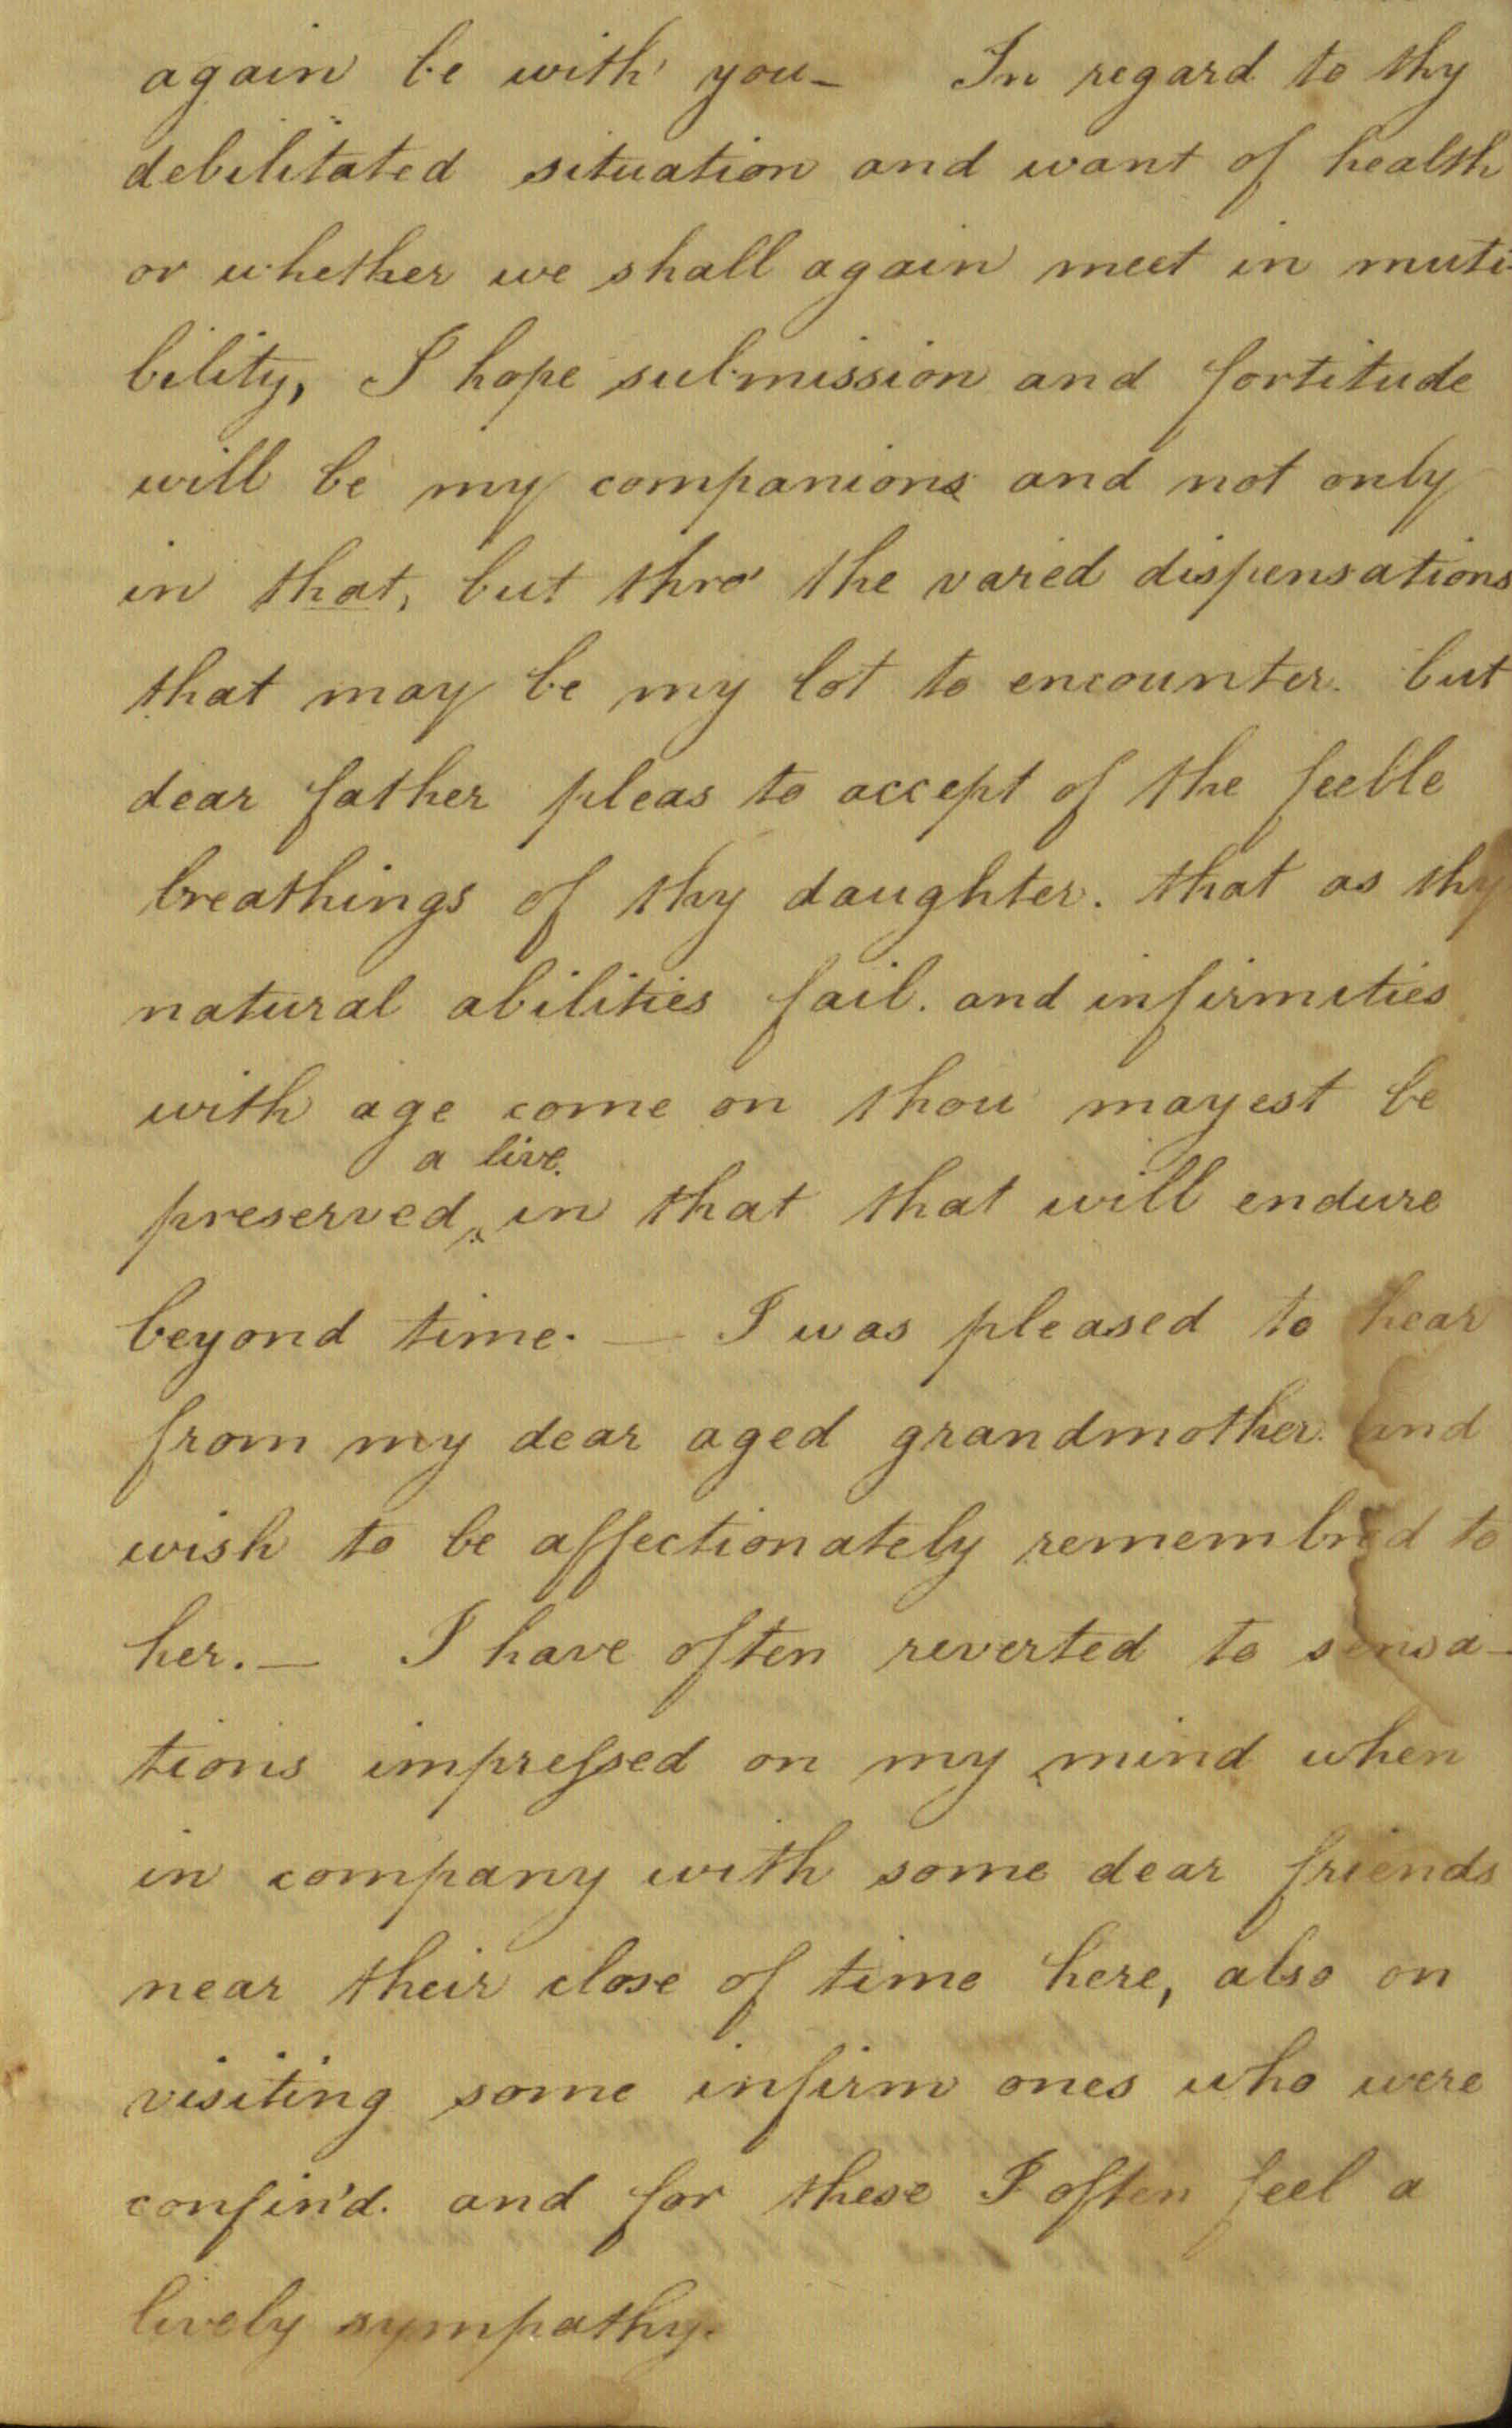 again be with you— In regard to thy
debilitated situation and want of health
or whether we shall again meet in muti-
bility, I hope submission and fortitude
will be my companions and not only
in that, but thro' the varied dispensations
that may be my lot to encounter. but
dear father pleas to accept of the feeble
breathings of thy daughter. that as thy
natural abilities fail. and infirmities
with age come on thou mayest be
a live.
preserved ‸ in that that will endure
beyond time. — I was pleased to hear
from my dear aged grandmother. and
wish to be affectionately remembred to
her. — I have often reverted to sensa-
tions impressed on my mind when
in company with some dear friends
near their close of time here, also on
visiting some infirm ones who were
confin'd. and for these I often feel a
lively sympathy.